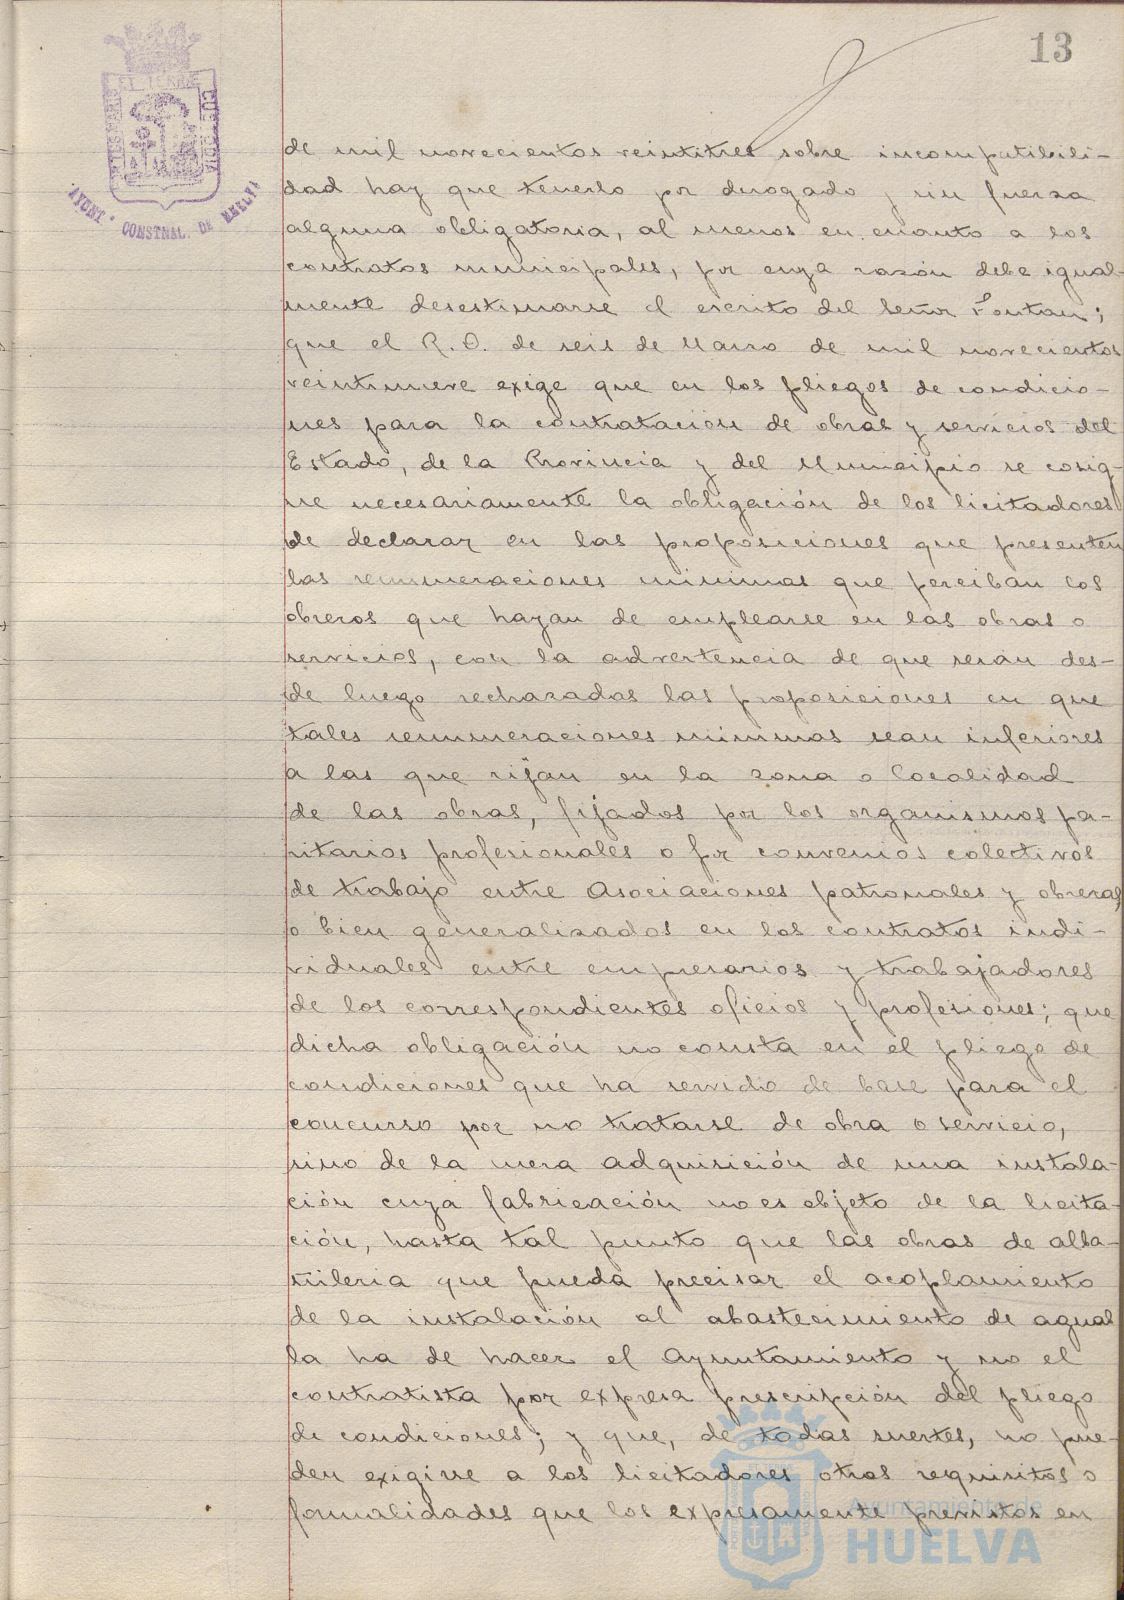 13
de mil novecientos veintitres sobre incompatibili-
dad hay que tenerlo por derogado y sin fuerza
alguna obligatoria, al menos en cuanto a los
contratos municipales, por cuya razón debe igual-
mente desestimarse el escrito del Señor Fontan;
que el R. D. de seis de Marzo de mil novecientos
veintinueve exige que en los pliegos de condicio-
nes para la contratación de obras y servicios del
Estado, de la Provincia y del Municipio se cosig-
ne necesariamente la obligación de los licitadores
de declarar en las proposiciones que presenten
las remuneraciones minimas que perciban los
obreros que hayan de emplearse en las obras o
servicios, con la advertencia de que serán des-
de luego rechazadas las proposiciones en que
tales remuneraciones minimas sean inferiores
a las que rijan en la zona o localidad
de las obras, fijados por los organismos pa-
ritarios profesionales o por convenios colectivos
de trabajo entre Asociaciones patronales y obreras,
o bien generalizados en los contratos indi-
viduales entre empresarios y trabajadores
de los correspondientes oficios y profesiones; que
dicha obligación no consta en el pliego de
condiciones que ha servido de base para el
concurso por no tratarse de obra o servicio,
sino de la mera adquisición de una instala-
ción cuya fabricación no es objeto de la licita-
ción, hasta tal punto que las obras de alba-
ñileria que pueda precisar el acoplamiento
de la instalación al abastecimiento de aguas
la ha de hacer el Ayuntamiento y no el
contratista por expresa prescripción del pliego
de condiciones; y que, de todas suertes, no pue-
den exigirse a los licitadores otros requisitos o
formalidades que los expresamente previstos en
AYUNT. CONSTNAL. DE HUELVA
Ayuntamiento de
HUELVA